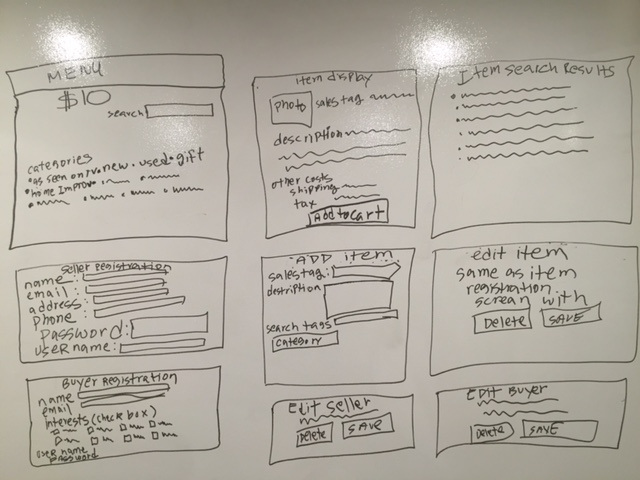 MENU
$10
search
categories
•as seen on tv •new •used •gift
•home Improv•
item display
photo sales tag
description
other costs
shipping
tax
Add to cart
Item search Results
Seller Registration
name:
email:
address:
phone:
password:
useRname:
ADD item
sales tag:
search tags
category
edit item
same as item
registration
screan with
Delete SAVE
Buyer Registration
name
email
interests (check box)
user name
password
Edit Seller
Delete SAVE
EDIT BUYER
Delete SAVE